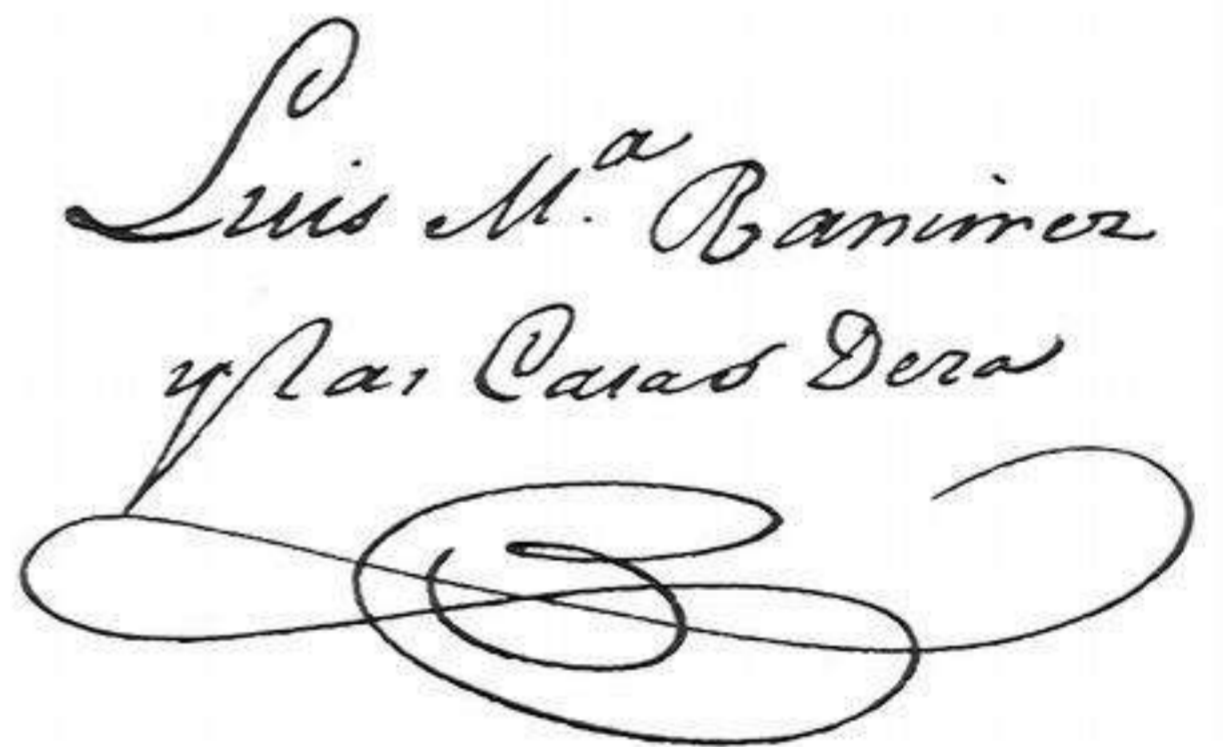 Luis M.ª Ramirez
y las Casas Deza